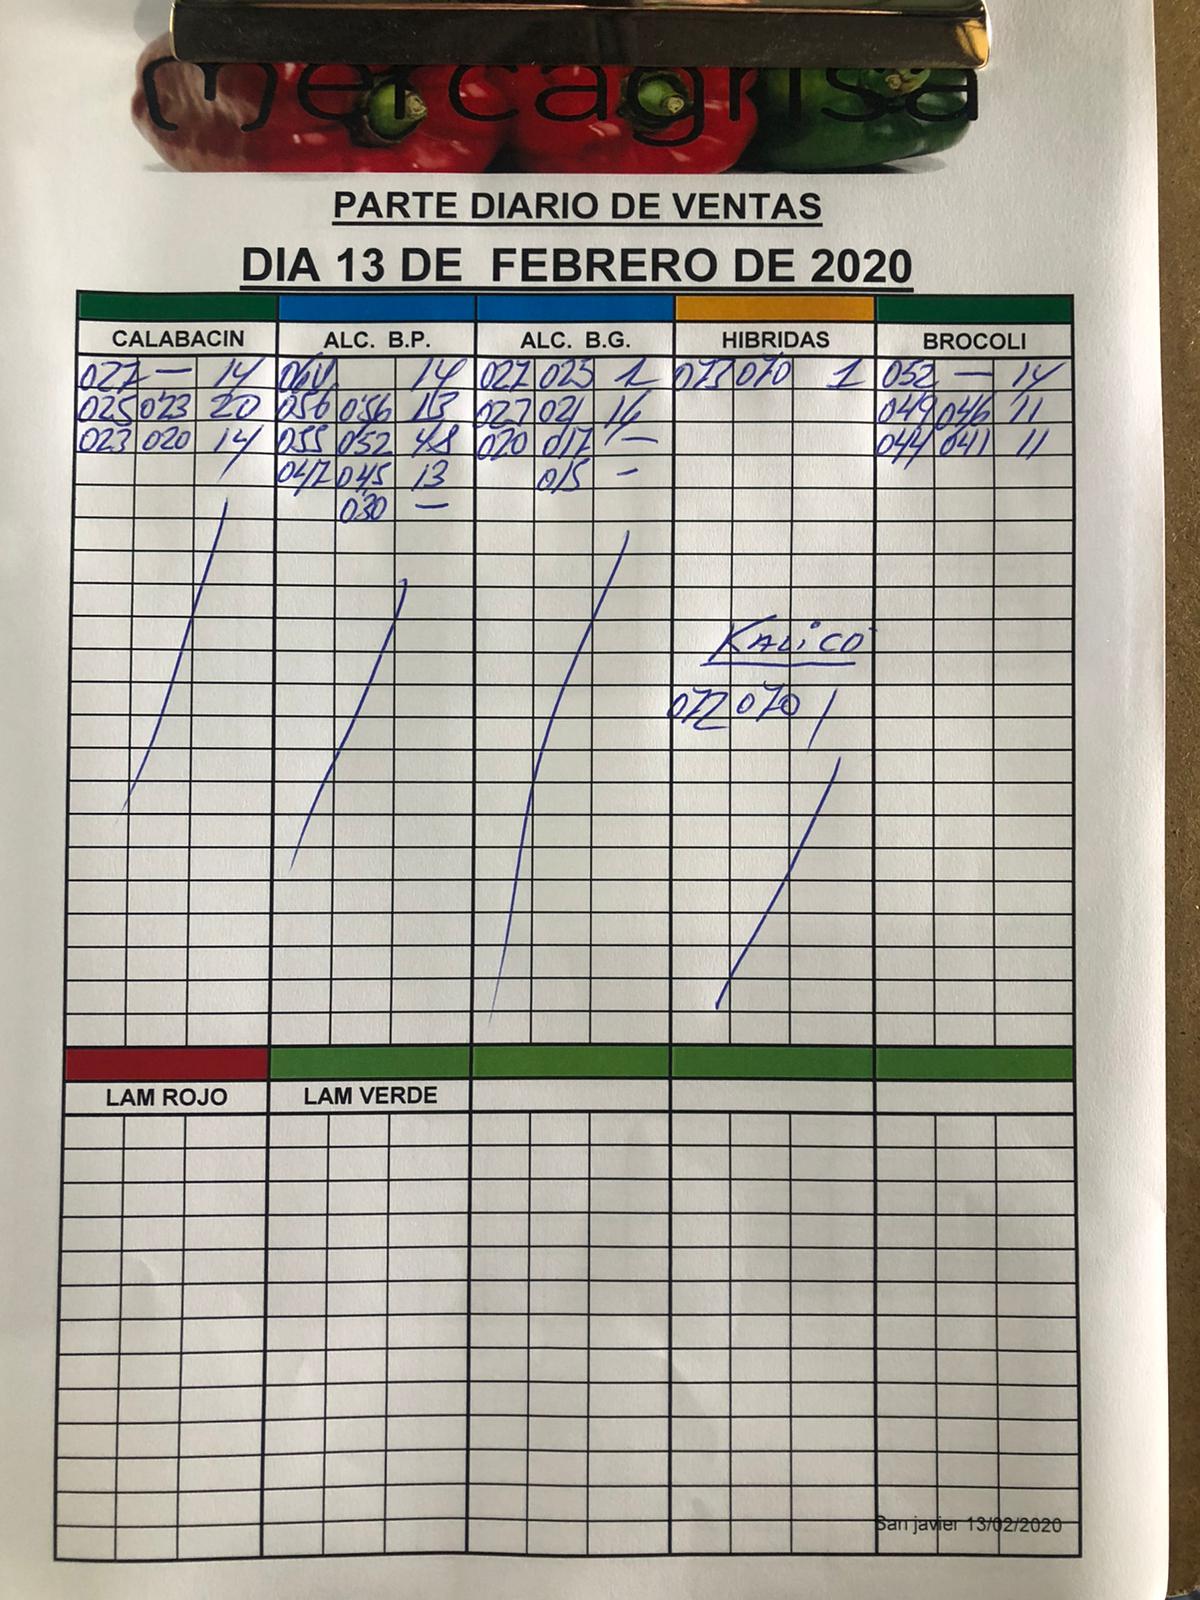 mercagrisa
PARTE DIARIO DE VENTAS
DIA 13 DE FEBRERO DE 2020
CALABACIN ALC. B.P. ALC. B.G. HIBRIDAS BROCOLI
027 — 14 064 14 027 025 1 073 070 1 052 — 14
025 023 20 056 056 13 027 021 16 049 046 11
023 020 14 055 052 48 020 017 — 044 041 11
047 045 13 015 —
030 —
KALICO
072 070 1
LAM ROJO LAM VERDE
San javier 13/02/2020